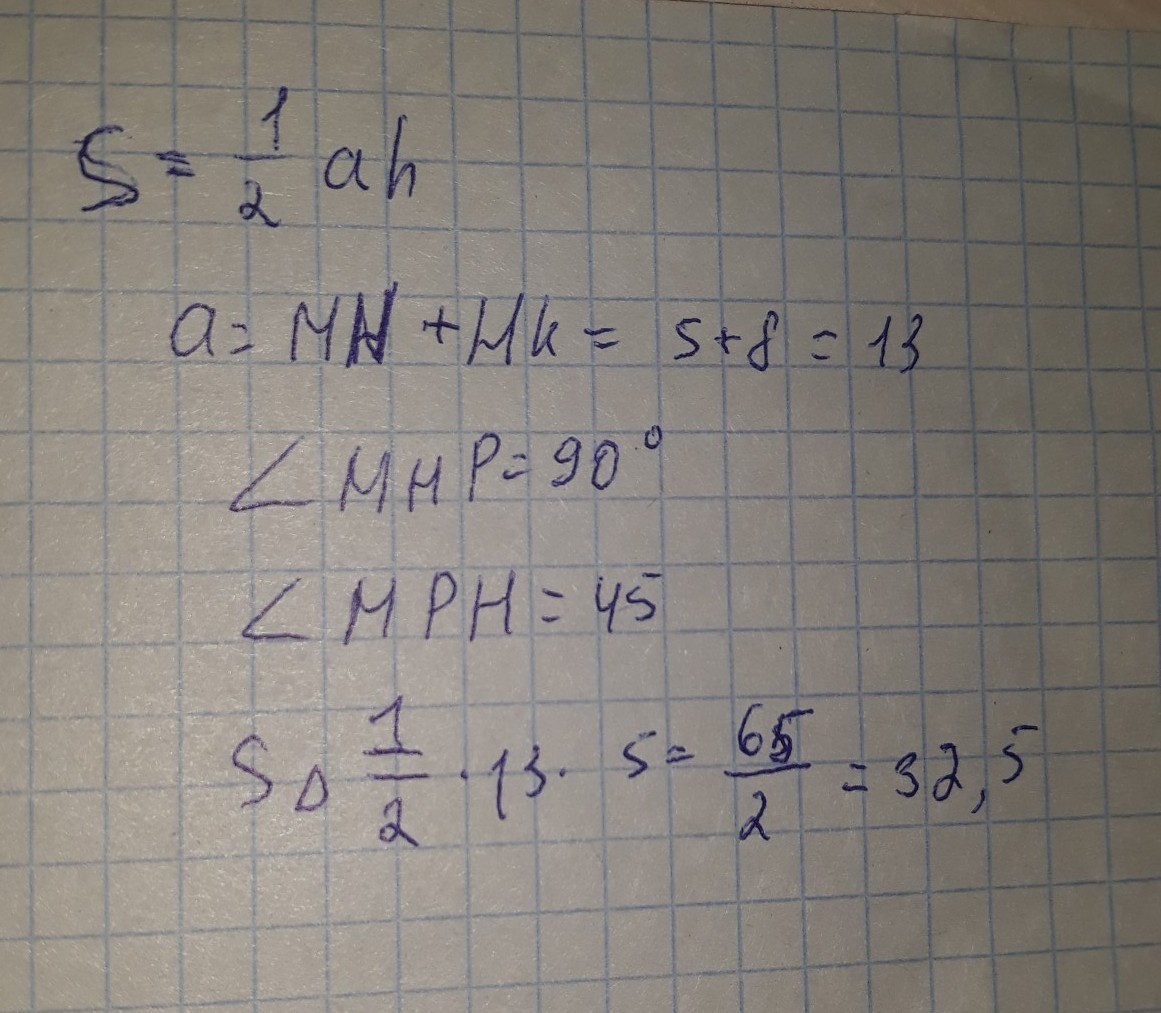 S = 1/2 ah
a = MH + HK = 5+8 = 13
∠ MHP = 90°
∠ MPH = 45
S△ 1/2 · 13 · 5 = 65/2 = 32,5